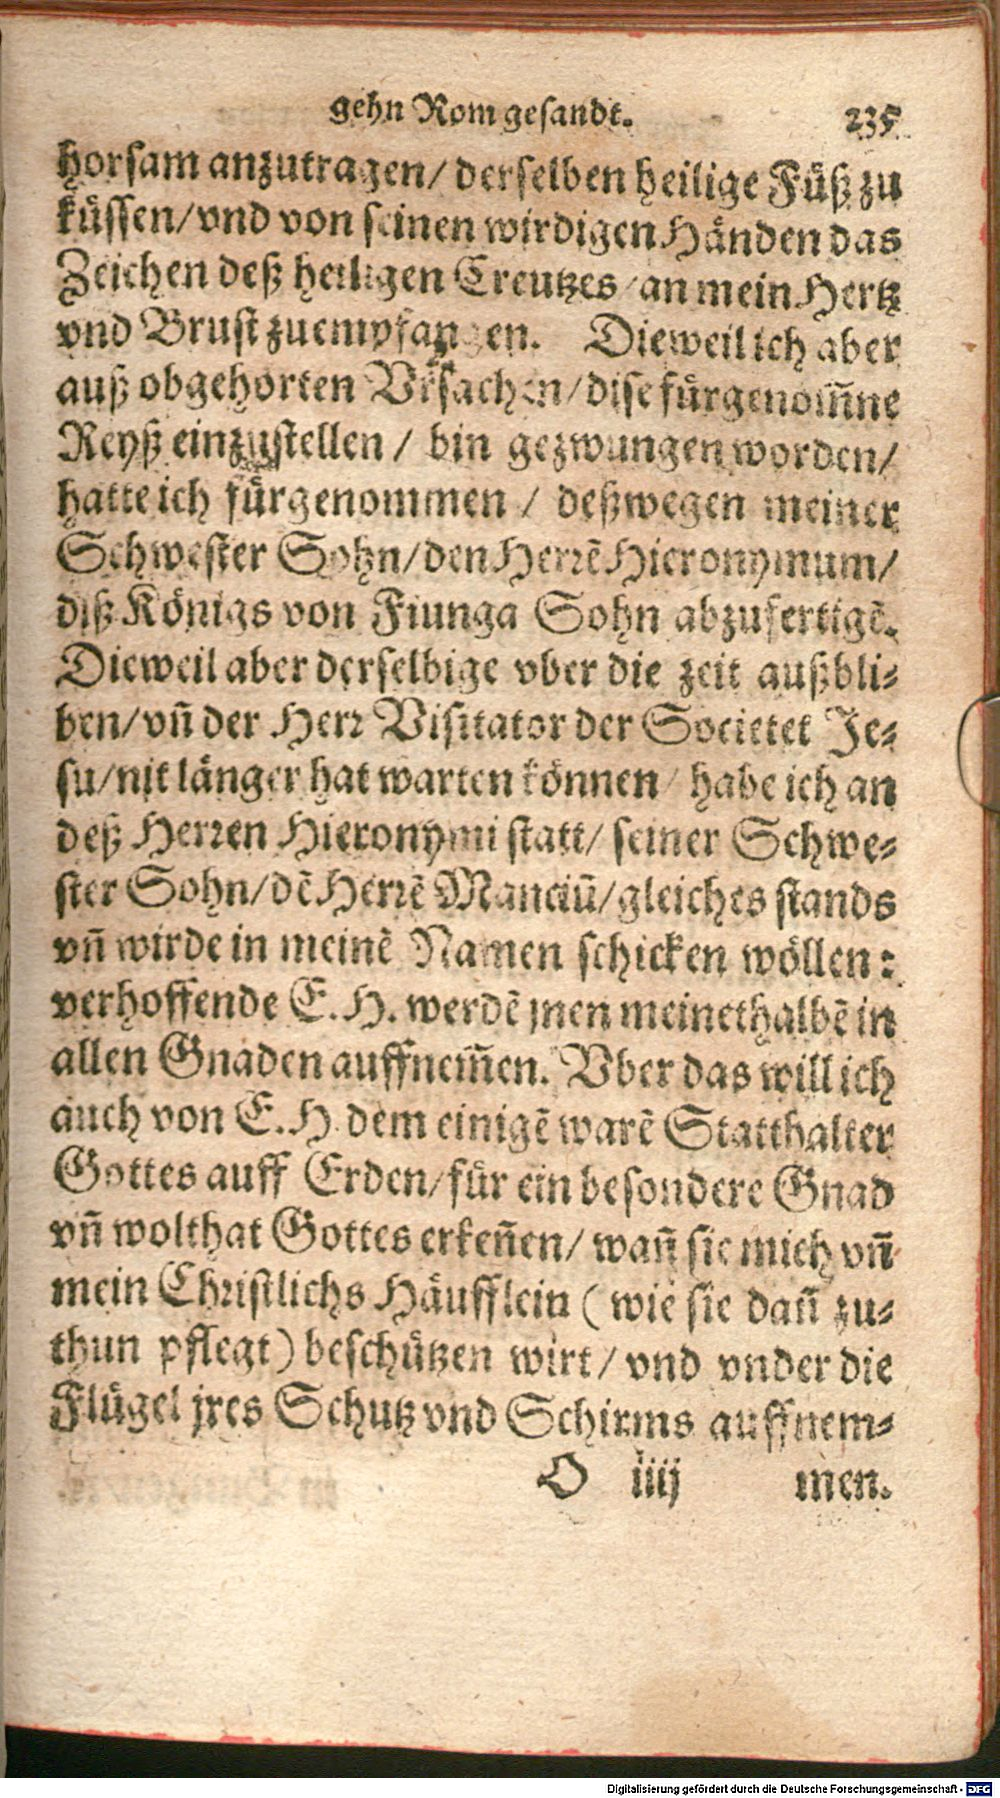 gehn Rom gesandt. 235
horsam anzutragen/ derselben heilige Füß zu
küssen/vnd von seinen wirdigen Händen das
Zeichen deß heiligen Creutzes/an mein Hertz
vnd Brust zuempfangen. Dieweil ich aber
auß obgehorten Vrsachen/dise fürgenom̃ne
Reyß einzustellen / bin gezwungen worden/
hatte ich fürgenommen / deßwegen meiner
Schwester Sohn/den Herrẽ Hieronymum/
diß Königs von Fiunga Sohn abzufertigẽ.
Dieweil aber derselbige vber die zeit außbli-
ben/vñ der Herr Visitator der Societet Je-
su/nit länger hat warten können/ habe ich an
deß Herren Hieronymi statt/ seiner Schwe-
ster Sohn/dẽ Herrẽ Manciũ/gleiches stands
vñ wirde in meinẽ Namen schicken wöllen:
verhoffende E.H. werdẽ jnen meinethalbẽ in
allen Gnaden auffnem̃en. Vber das will ich
auch von E.H. dem einigẽ warẽ Statthalter
Gottes auff Erden/für ein besondere Gnad
vñ wolthat Gottes erkeñen/ wañ sie mich vñ
mein Christlichs Häufflein ( wie sie dañ zu-
thun pflegt) beschützen wirt/ vnd vnder die
Flügel jres Schutz vnd Schirms auffnem-
O iiij men.
Digitalisierung gefördert durch die Deutsche Forschungsgemeinschaft - DFG